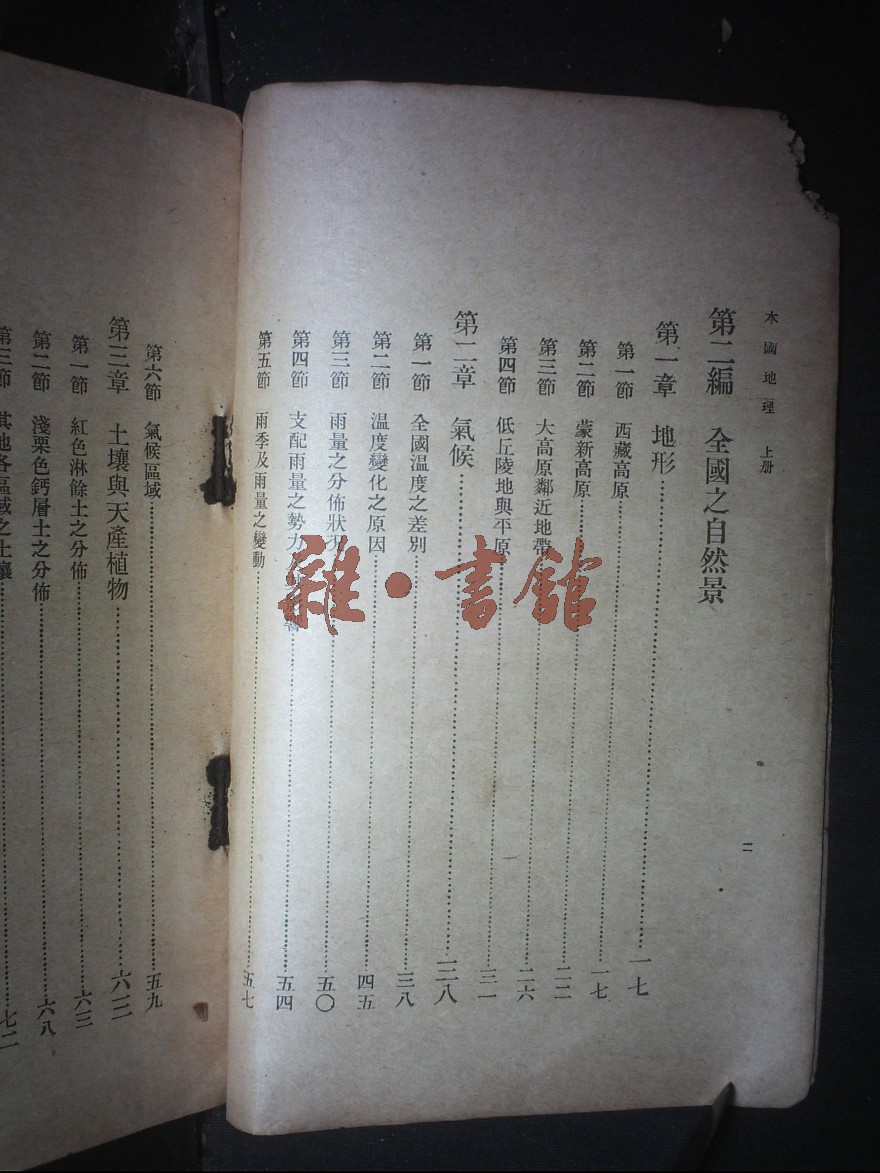 本國地理 上册
二
第二編 全國之自然景
第一章 地形……一七
第一節 西藏高原……一七
第二節 蒙新高原……二二
第三節 大高原鄰近地帶……二六
第四節 低丘陵地與平原……三一
第二章 氣候……三八
第一節 全國溫度之差別……三八
第二節 溫度變化之原因……四五
第三節 雨量之分佈狀……五〇
第四節 支配雨量之勢力……五四
第五節 雨季及雨量之變動……五七
第六節 氣候區域……五九
第三章 土壤與天產植物……六三
第一節 紅色淋餘土之分佈……六三
第二節 淺栗色鈣層土之分佈……六八
第三節 其他各區域之土壤……七二
雜·書館